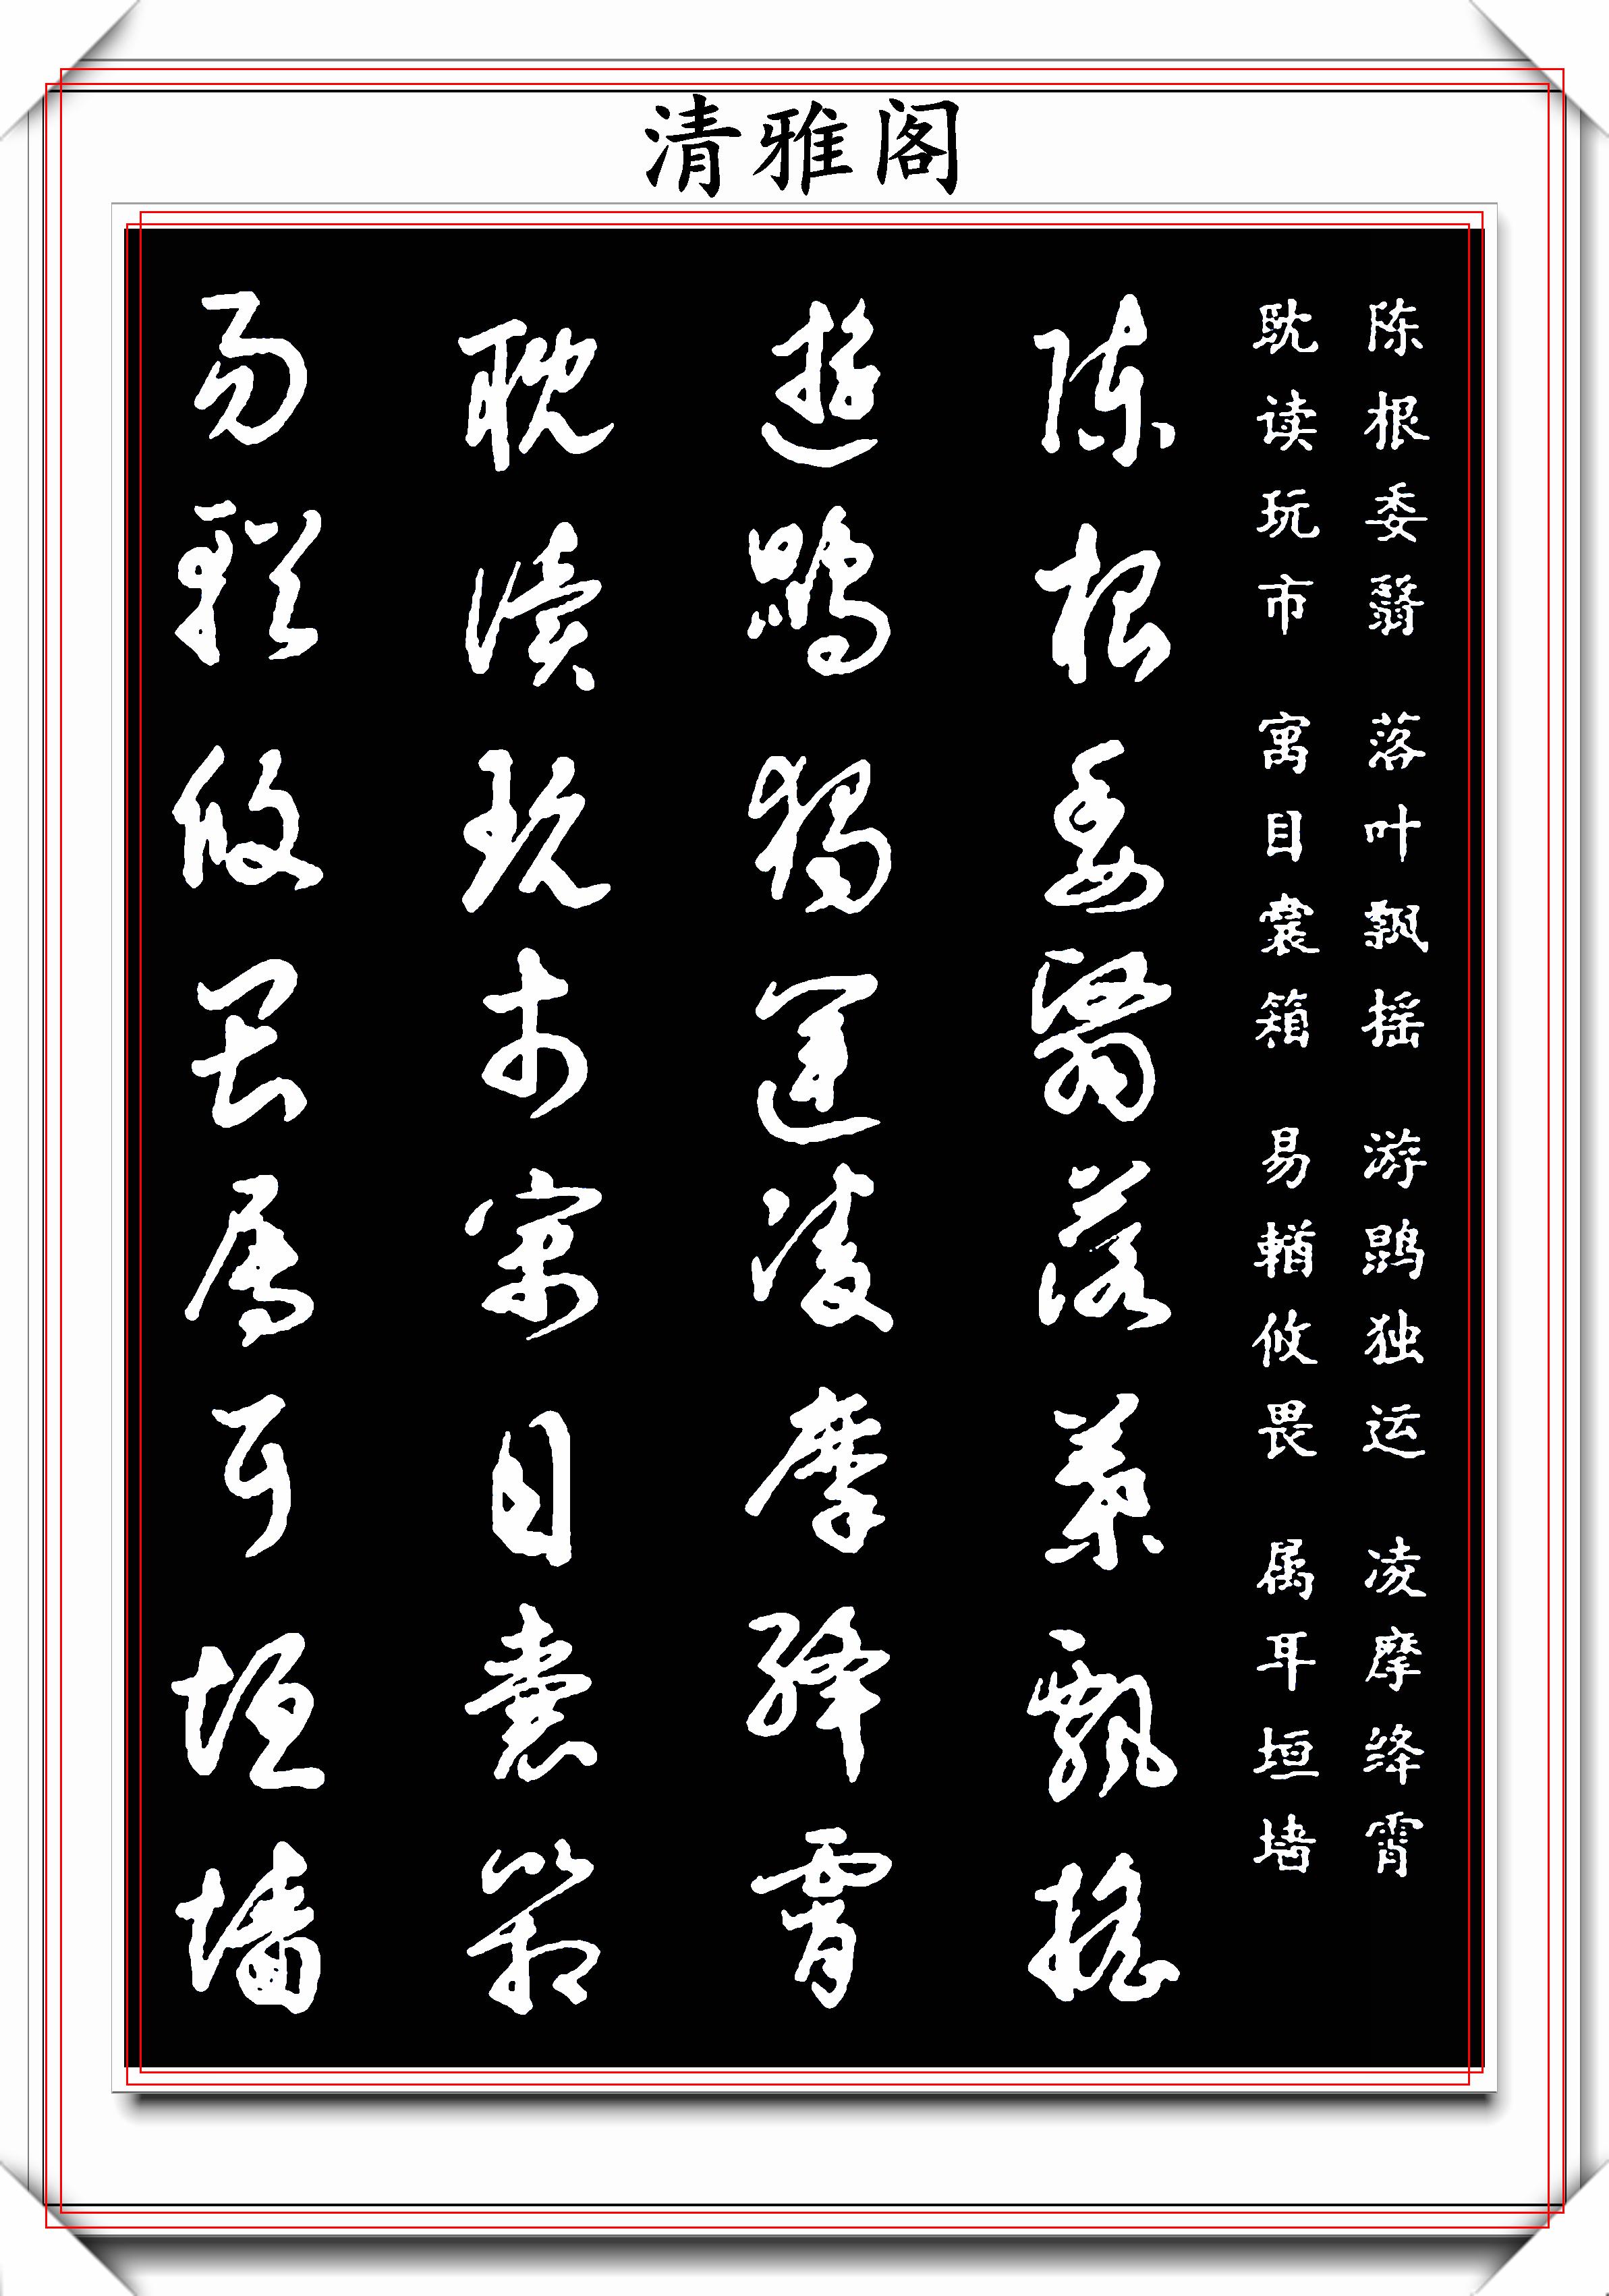 清雅阁
陈根委翳 落叶飘摇 游鹍独运 凌摩绛霄
耽读玩市 寓目囊箱 易輶攸畏 属耳垣墙
陳根委翳落葉飄搖
遊鵾獨運凌摩絳霄
耽讀玩市寓目囊箱
易輶攸畏屬耳垣墻